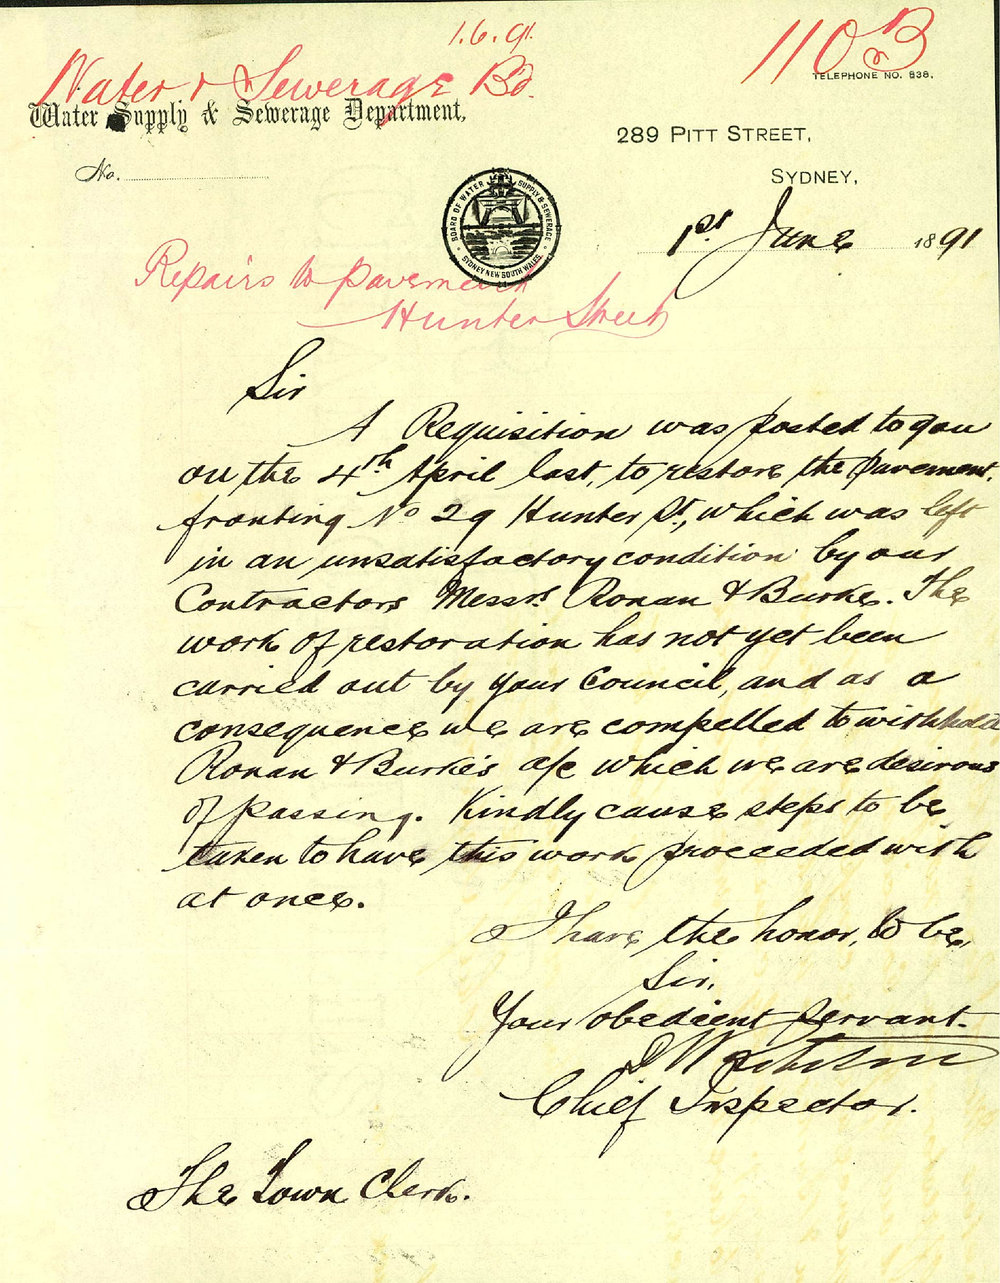 1.6.91.
110B
Water & Sewerage Bd.
TELEPHONE NO. 838.
Water Supply & Sewerage Department,
289 PITT STREET,
No.
SYDNEY,
BOARD OF WATER SUPPLY & SEWERAGE
SYDNEY NEW SOUTH WALES
1st June 1891
Repairs to pavement
Hunter Street
Sir
A Requisition was posted to you
on the 4th April last, to restore the pavement,
fronting No 29 Hunter St., which was left
in an unsatisfactory condition by our
Contractors Messrs. Ronan & Burke. The
work of restoration has not yet been
carried out by your Council, and as a
consequence we are compelled to withhold
Ronan & Burke's a/c which we are desirous
of passing. Kindly cause steps to be
taken to have this work proceeded with
at once.
I have the honor, to be,
Sir,
Your obedient servant.
Chief Inspector.
The Town Clerk.